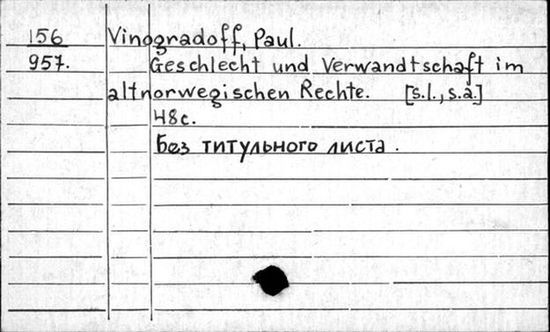 156 Vinogradoff, Paul.
957. Geschlecht und Verwandtschaft im
altnorwegischen Rechte. [s.l., s.a.]
48c.
Без титульного листа.